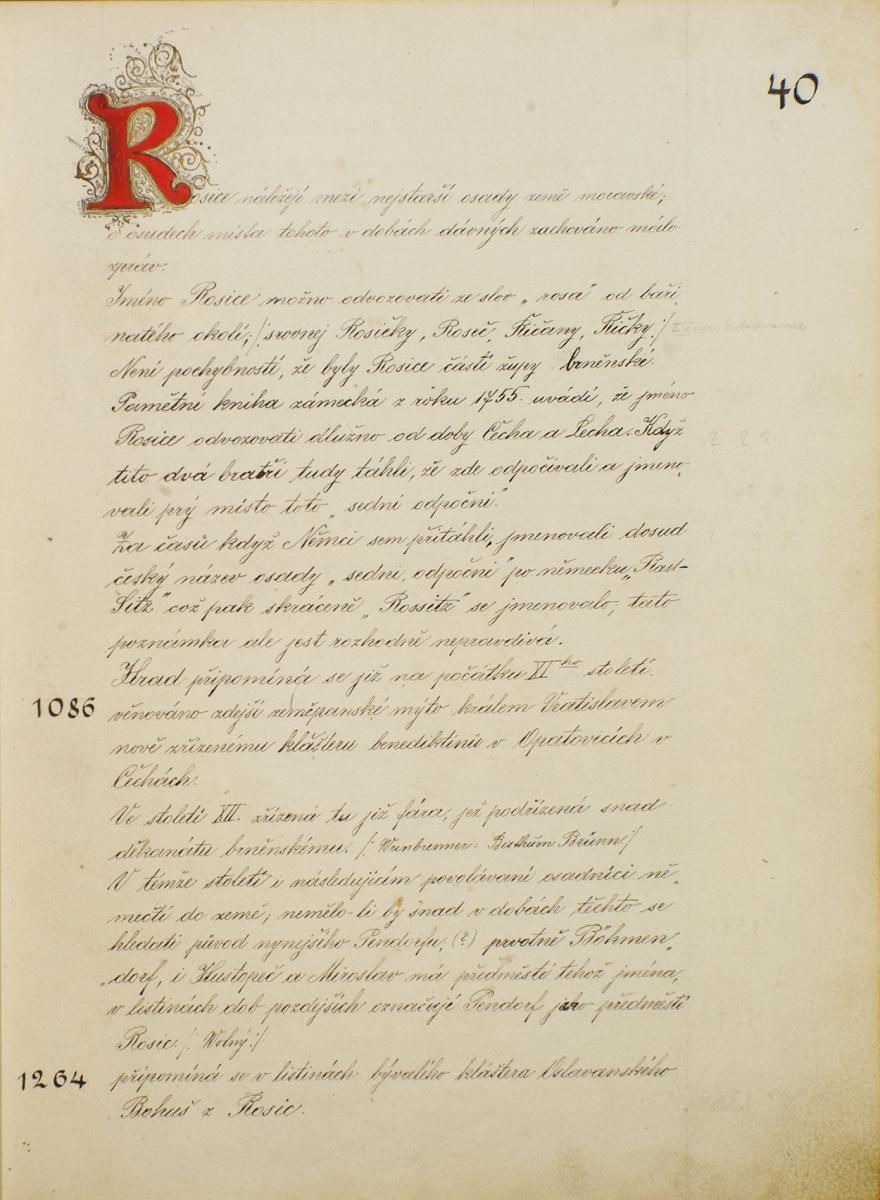 40
Rosice náležejí mezi nejstarší osady země moravské;
o osudech místa tohoto v dobách dávných zachováno málo
zpráv.
Jméno Rosice možno odvozovati ze slov „rosa" od baři„
natého okolí; /:srovnej Rosičky, Roseč, Řičany, Řičky:/
Není pochybností, že byly Rosice částí župy brněnské.
Pamětní kniha zámecká z roku 1755. uvádí, že jméno
Rosice odvozovati dlužno od doby Čecha a Lecha. Když
tito dvá bratři tudy táhli, že zde odpočívali a jmeno„
vali prý místo toto „sedni odpočni."
Za časů když Němci sem přitáhli, jmenovali dosud
český název osady „sedni, odpočni" po německu „Rast-
Sitz" což pak skráceně „Rossitz" se jmenovalo; tato
poznámka ale jest rozhodně nepravdivá.
Hrad připomíná se již na počátku XI ho století.
1086 věnováno zdejší zeměpanské mýto králem Vratislavem
nově zřízenému klášteru benediktinů v Opatovicích v
Čechách.
Ve století XII. zřízená tu již fára, jež podřízená snad
děkanátu brněnskému. /: Weinbrenner: Bisthum Brünn:/
V témže století i následujícím povoláváni osadníci ně„
mečtí do země; nemělo-li by snad v dobách těchto se
hledati původ nynejšího Pendorfu, (?) prvotně Böhmen„
„dorf, i Hustopeč a Miroslav má předměstí tehož jména,
v listinách dob pozdejších označují Pendorf jako předměstí
Rosic. /: Wolný:/
1264 připomíná se v listinách bývalého kláštera Oslavanského
Bohuš z Rosic.